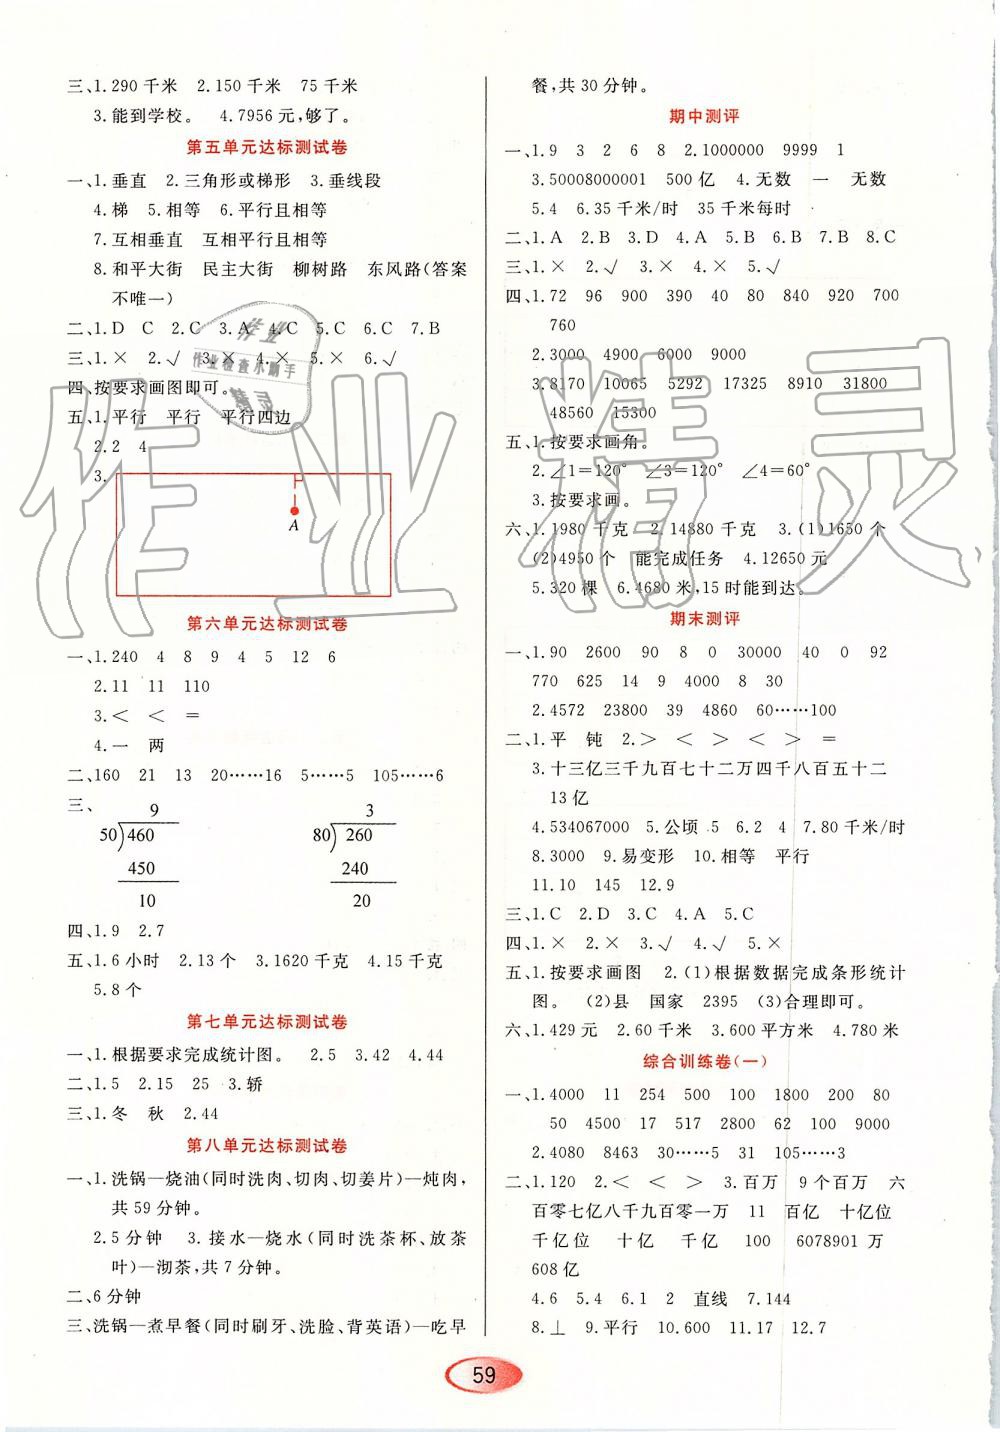 三、1.290千米 2.150千米 75千米
3.能到学校。 4.7956元,够了。
第五单元达标测试卷
一、1.垂直 2.三角形或梯形 3.垂线段
4.梯 5.相等 6.平行且相等
7.互相垂直 互相平行且相等
8.和平大街 民主大街 柳树路 东风路(答案
不唯一)
二、1.D C 2.C 3.A 4.C 5.C 6.C 7.B
三、1.× 2.√ 3.× 4.× 5.× 6.√
四、按要求画图即可。
五、1.平行 平行 平行四边
2.2 4
3.
A
第六单元达标测试卷
一、1.240 4 8 9 4 5 12 6
2.11 11 110
3.＜ ＜ ＝
4.一 两
二、160 21 13 20……16 5……5 105……6
三、
9
50)460
450
10
3
80)260
240
20
四、1.9 2.7
五、1.6小时 2.13个 3.1620千克 4.15千克
5.8个
第七单元达标测试卷
一、1.根据要求完成统计图。 2.5 3.42 4.44
二、1.5 2.15 25 3.轿
三、1.冬 秋 2.44
第八单元达标测试卷
一、1.洗锅—烧油(同时洗肉、切肉、切姜片)—炖肉,
共59分钟。
2.5分钟 3.接水—烧水(同时洗茶杯、放茶
叶)—沏茶,共7分钟。
二、6分钟
三、洗锅—煮早餐(同时刷牙、洗脸、背英语)—吃早
餐,共30分钟。
期中测评
一、1.9 3 2 6 8 2.1000000 9999 1
3.50008000001 500亿 4.无数 一 无数
5.4 6.35千米/时 35千米每时
二、1.A 2.B 3.D 4.A 5.B 6.B 7.B 8.C
三、1.× 2.√ 3.× 4.× 5.√
四、1.72 96 900 390 40 80 840 920 700
760
2.3000 4900 6000 9000
3.8170 10065 5292 17325 8910 31800
48560 15300
五、1.按要求画角。
2.∠1=120° ∠3=120° ∠4=60°
3.按要求画。
六、1.1980千克 2.14880千克 3.(1)1650个
(2)4950个 能完成任务 4.12650元
5.320棵 6.4680米,15时能到达。
期末测评
一、1.90 2600 90 8 0 30000 40 0 92
770 625 14 9 4000 8 30
2.4572 23800 39 4860 60……100
二、1.平 钝 2.＞ ＜ ＞ ＜ ＞ ＝
3.十三亿三千九百七十二万四千八百五十二
13亿
4.534067000 5.公顷 5 6.2 4 7.80千米/时
8.3000 9.易变形 10.相等 平行
11.10 145 12.9
三、1.C 2.D 3.C 4.A 5.C
四、1.× 2.× 3.√ 4.√ 5.×
五、1.按要求画图 2.(1)根据数据完成条形统计
图。 (2)县 国家 2395 (3)合理即可。
六、1.429元 2.60千米 3.600平方米 4.780米
综合训练卷(一)
一、1.4000 11 254 500 100 1800 200 80
50 4500 17 517 2800 62 100 800
2.4080 8463 30……5 31 105……3
二、1.120 2.＜ ＜ ＞ 3.百万 9个百万 六
百零七亿八千九百零一万 11 百亿 十亿位
千亿位 十亿 千亿 100 6078901万
608亿
4.6 5.4 6.1 2 直线 7.144
8.⊥ 9.平行 10.600 11.17 12.7
59
作业
作业检查小助手
精灵
作业精灵